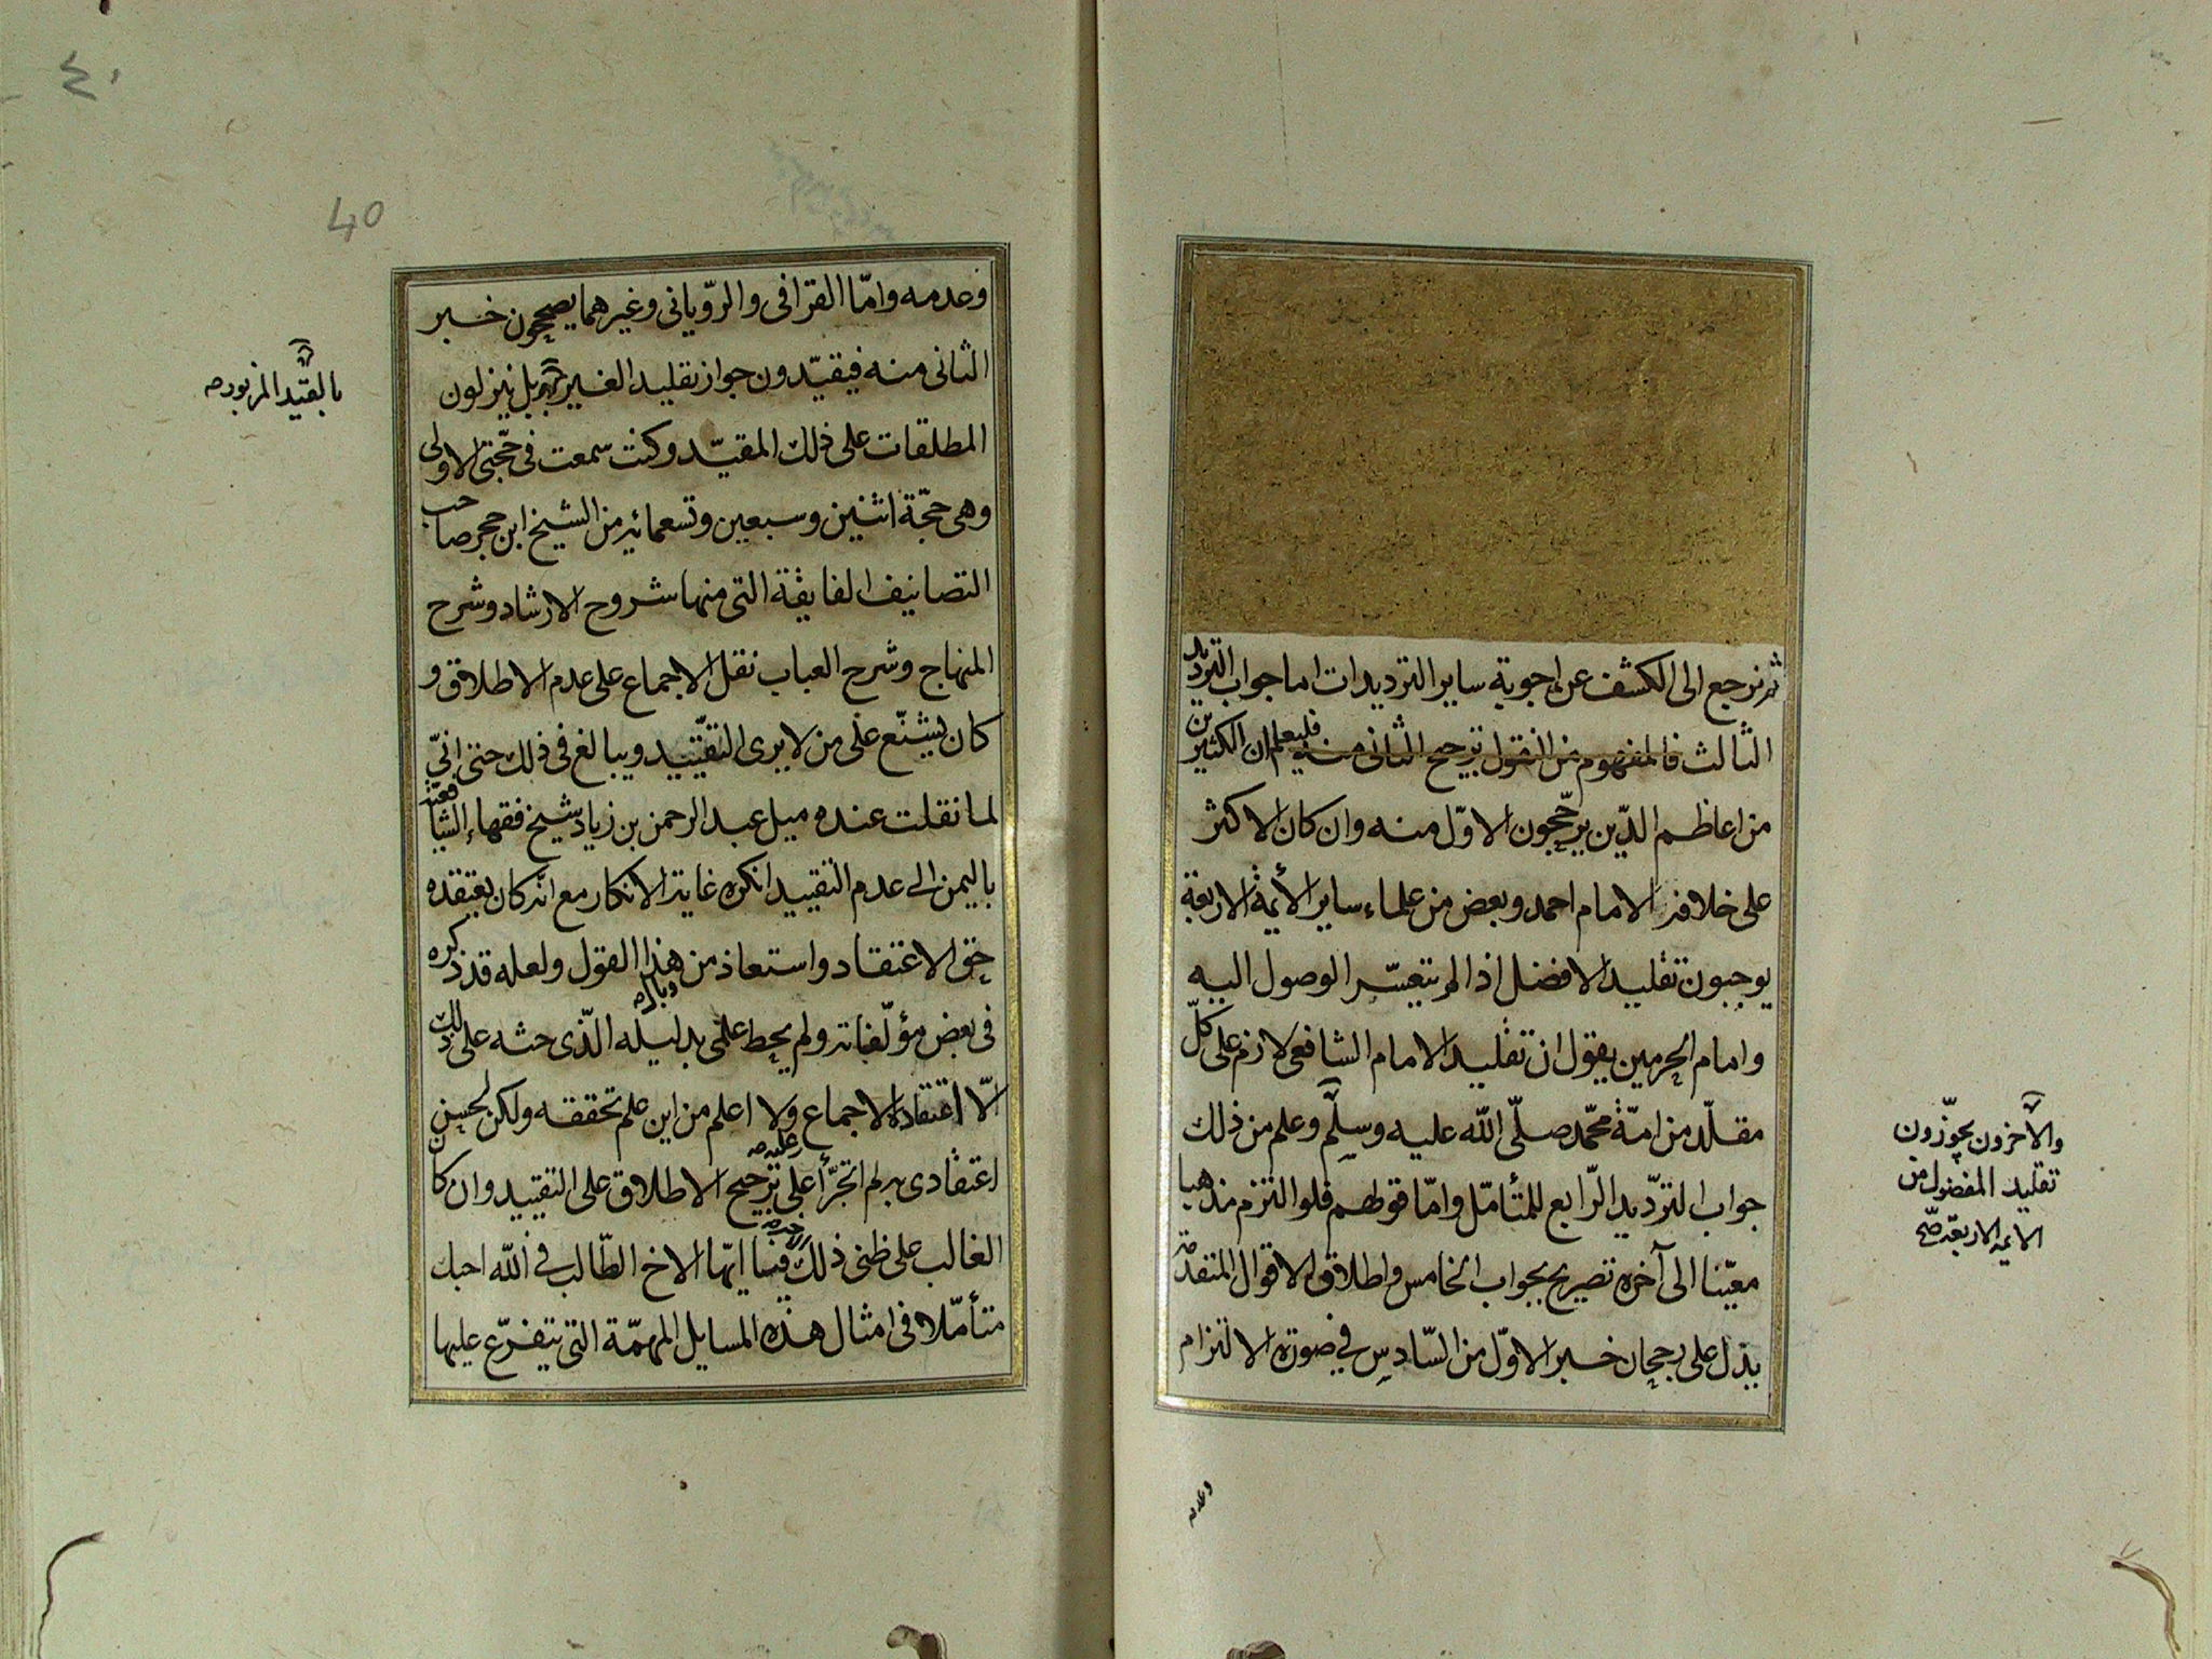 ثم نرجع الى الكشف عن اجوبة ساير الترديدات اما جواب الترديد
الثالث فالمفهوم من النقول ترجيح الثانى منه فليعلم ان الكثيرين
من اعاظم الدّين يرجّحون الاوّل منه وان كان الاكثر
على خلافه الامام احمد وبعض من علماء ساير الأيمة الاربعة
يوجبون تقليد الافضل اذا لم يتعسّر الوصول اليه
وامام الحرمين يقول ان تقليد الامام الشافعى لازم على كلّ
مقلّد من امّة محمّد صلّى الله عليه وسلّم وعلم من ذلك
جواب الترّديد الرّابع للمتأمّل وامّا قولهم فلو التزم مذهبا
معيّنا الى آخره تصريح بجواب الخامس واطلاق الاقوال المتقدّمة
يدل على رجحان خبر الاوّل من السّادس في صورة الالتزام
والآخرون يجوّزون
تقليد المفضول من
الايمة الاربعة صح
وعدمه
٤٠
40
وعدمه وامّا القرافى والروّيانى وغيرهما يصححون خبر
الثانى منه فيقيّدون جواز تقليد الغير بل ينزلون
المطلقات على ذلك المقيّد وكنت سمعت فى حجّتى الاولى
وهى حجّة اثنين وسبعين وتسعمائة من الشيخ ابن حجر صاحب
التصانيف الفايقة التى منها شروح الارشاد وشرح
المنهاج وشرح العباب نقل الاجماع على عدم الاطلاق و
كان يشنّع على من لا يرى التقييد ويبالغ فى ذلك حتى انّى
لما نقلت عنده ميل عبد الرحمن بن زياد شيخ فقهاء الشافعية
باليمن الى عدم التقييد انكره غاية الانكار مع انه كان يعتقده
حق الاعتقاد واستعاذ من هذا القول ولعله قد ذكره
فى بعض مؤلّفاته ولم يحط علمى بدليله الّذى حثه على ذلك
الّا اعتقاده الاجماع ولا اعلم من اين علم تحققه ولكن لحسن
اعتقادى به لم اتجرّأ على ترجيح الاطلاق على التقييد وان كان
الغالب على ظنى ذلك فيا ايّها الاخ الطّالب فى الله احبك
متأمّلا فى امثال هذه المسايل المهمّة التى يتفرّع عليها
بالقيّد المزبور صح